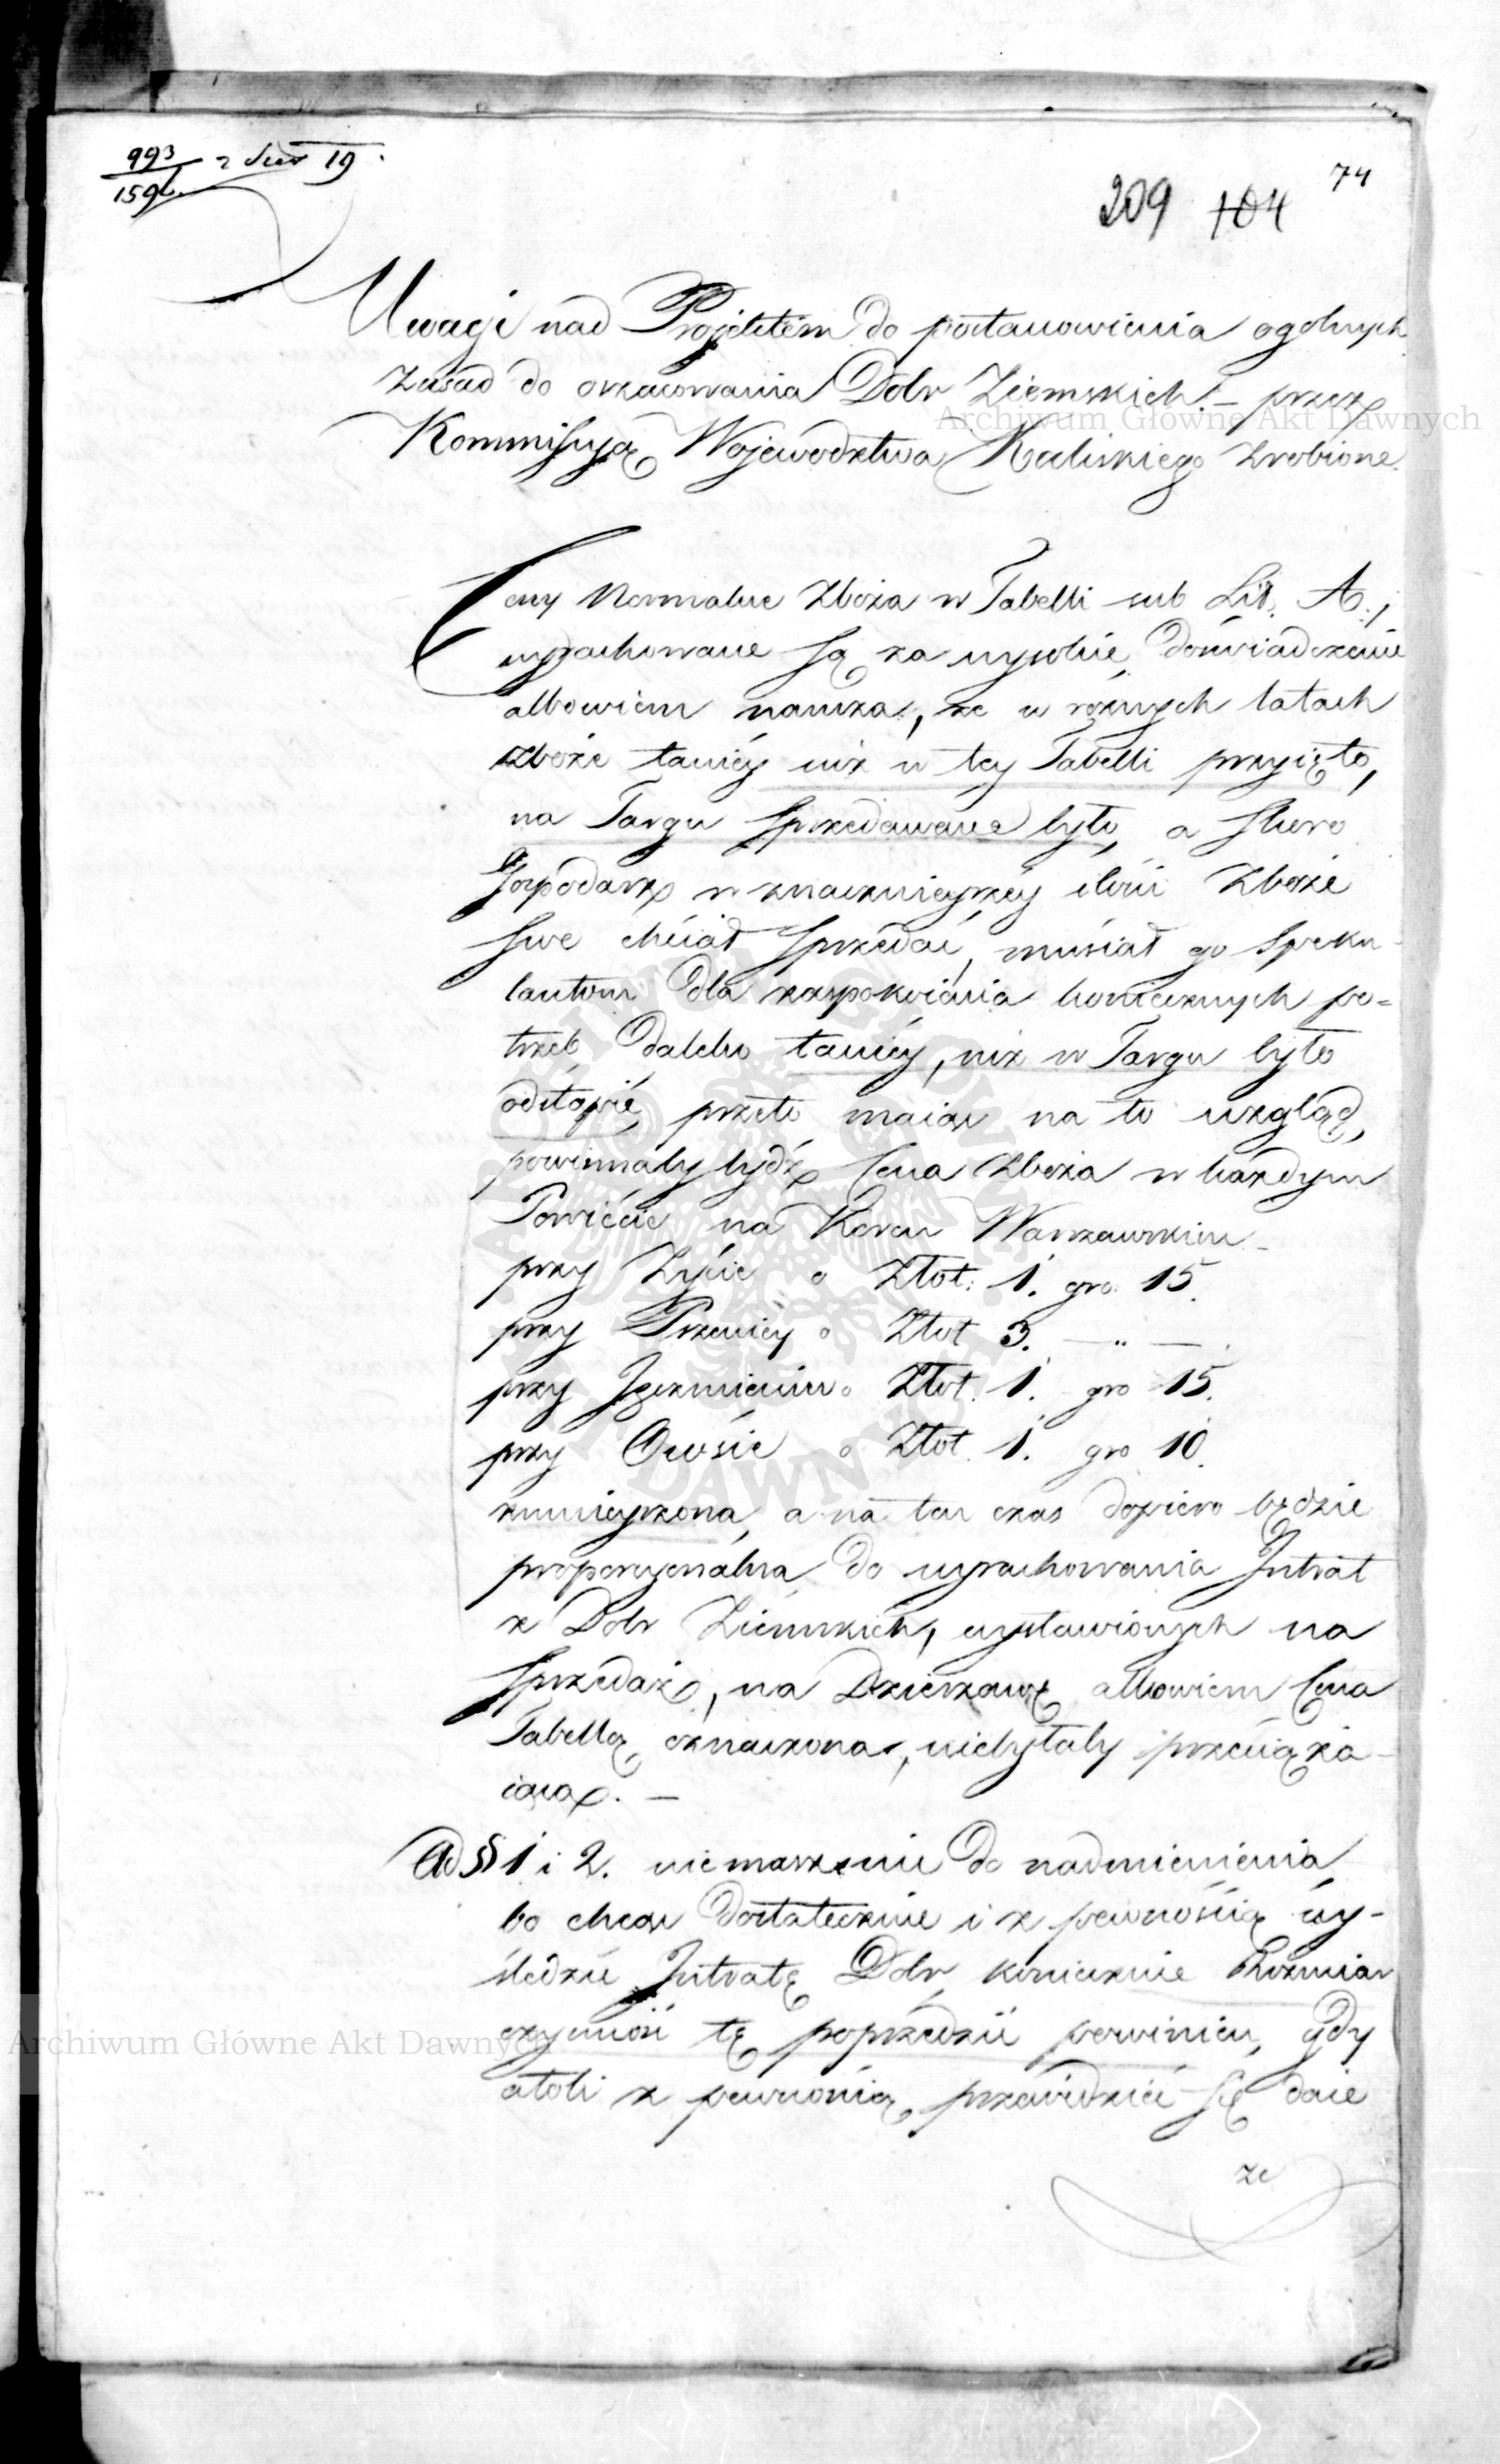 993
1591
209 104 74
Uwagi nad Projektem do postanowienia ogolnych
Zasad do oszacowania Dobr Ziemskich. – przez
Kommissyą Wojewodztwa Kaliskiego zrobione.
Ceny Normalne Zboża w Tabelli sub Lit. A.,
wyrachowane są za wysokie, doświadczenie
albowiem naucza, że w rożnych latach
zboże taniéy niż w tey Tabelli przyięto,
na Targu sprzedawane było, a skoro
Gospodarz w znacznieyszéy ilości Zboże
swe chciał sprzedać, musiał go Speku-
lantom dla zaspokoiania koniecznych po=
trzeb daleko taniéy, niż w Targu było
odstąpić, przeto maiąc na to wzgląd,
powinnaby bydź Cena Zboża w każdym
Powiecie na Korcu Warszawskim –
przy Życie o Złot: 1. gro. 15.
przy Pszenicy o Złot 3. — „ —.
przy Jęczmieniu o Złot. 1. gro 15.
przy Owsie o Złot. 1. gro 10.
zmnieyszona, a na ten czas dopiero będzie
proporcyonalna do wyrachowania Jntrat
z Dobr Ziemskich, wystawionych na
sprzedaż, na Dzierzawę albowiem Cena
Tabellą oznaczona, niebyłaby przeciąża-
iącą. —
Ad § 1 i 2. niemasz nic do nadmienienia,
bo chcąc dostatecznie i z pewnością wy-
śledzić Jntratę Dobr, koniecznie Rozmiar
czynność tę poprzedzić powinien, gdy
atoli z pewnością przewidzieć się daie
że
Archiwum Główne Akt Dawnych
Archiwum Główne Akt Dawnych